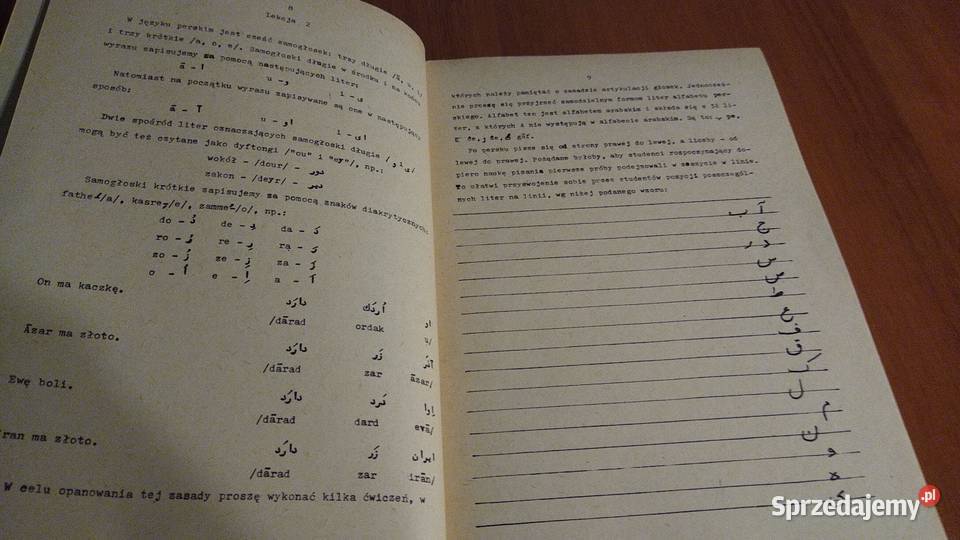 8
Lekcja 2
W języku perskim jest sześć samogłosek: trzy długie /ā, u, i/
i trzy krótkie /a, o, e/. Samogłoski długie w środku i na końcu
wyrazu zapisujemy za pomocą następujących liter:
ā - ا u - و i - ى
Natomiast na początku wyrazu zapisywane są one w następujący
sposób:
ā - آ u - او i - اى
Dwie spośród liter oznaczających samogłoski długie /و ى/
mogą być też czytane jako dyftongi /"ou" i "ey"/, np.:
wokół - /dour/ - دور
zakon - /deyr/ - دير
Samogłoski krótkie zapisujemy za pomocą znaków diakrytycznych:
fathe /a/, kasre /e/, zamme /o/, np.:
do - دُ de - دِ da - دَ
ro - رُ re - رِ ra - رَ
zo - زُ ze - زِ za - زَ
o - اُ e - اِ a - اَ
On ma kaczkę. دارَد اُردَك او
/dārad ordak u/
Āzar ma złoto. دارَد زَر آذَر
/dārad zar āzar/
Ewę boli. دارَد دَرد اِوا
/dārad dard evā/
Iran ma złoto. دارَد زَر ايران
/dārad zar irān/
W celu opanowania tej zasady proszę wykonać kilka ćwiczeń, w
9
których należy pamiętać o zasadzie artykulacji głosek. Jednocześ-
nie proszę się przyjrzeć samodzielnym formom liter alfabetu per-
skiego. Alfabet ten jest alfabetem arabskim i składa się z 32 li-
ter, z których 4 nie występują w alfabecie arabskim. Są to: پ pe,
چ če, ژ že, گ gāf.
Po persku pisze się od strony prawej do lewej, a liczby - od
lewej do prawej. Pożądane byłoby, aby studenci rozpoczynający do-
piero naukę pisania pierwsze próby podejmowali w zeszycie w linie.
To ułatwi przyswojenie sobie przez studentów pozycji poszczegól-
nych liter na linii, wg niżej podanego wzoru:
آ
ب
ح
د ر
س
ص
ط
ع
ف
ق
ك
ل
م
ن
و
ه
ى
Sprzedajemy.pl